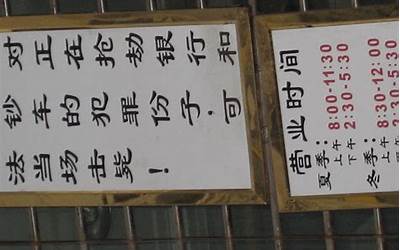 对正在抢劫银行和
钞车的犯罪份子,可
法当场击毙!
营业时间
夏季:上午 8:00-11:30
下午 2:30-5:30
冬季:上午 8:30-12:00